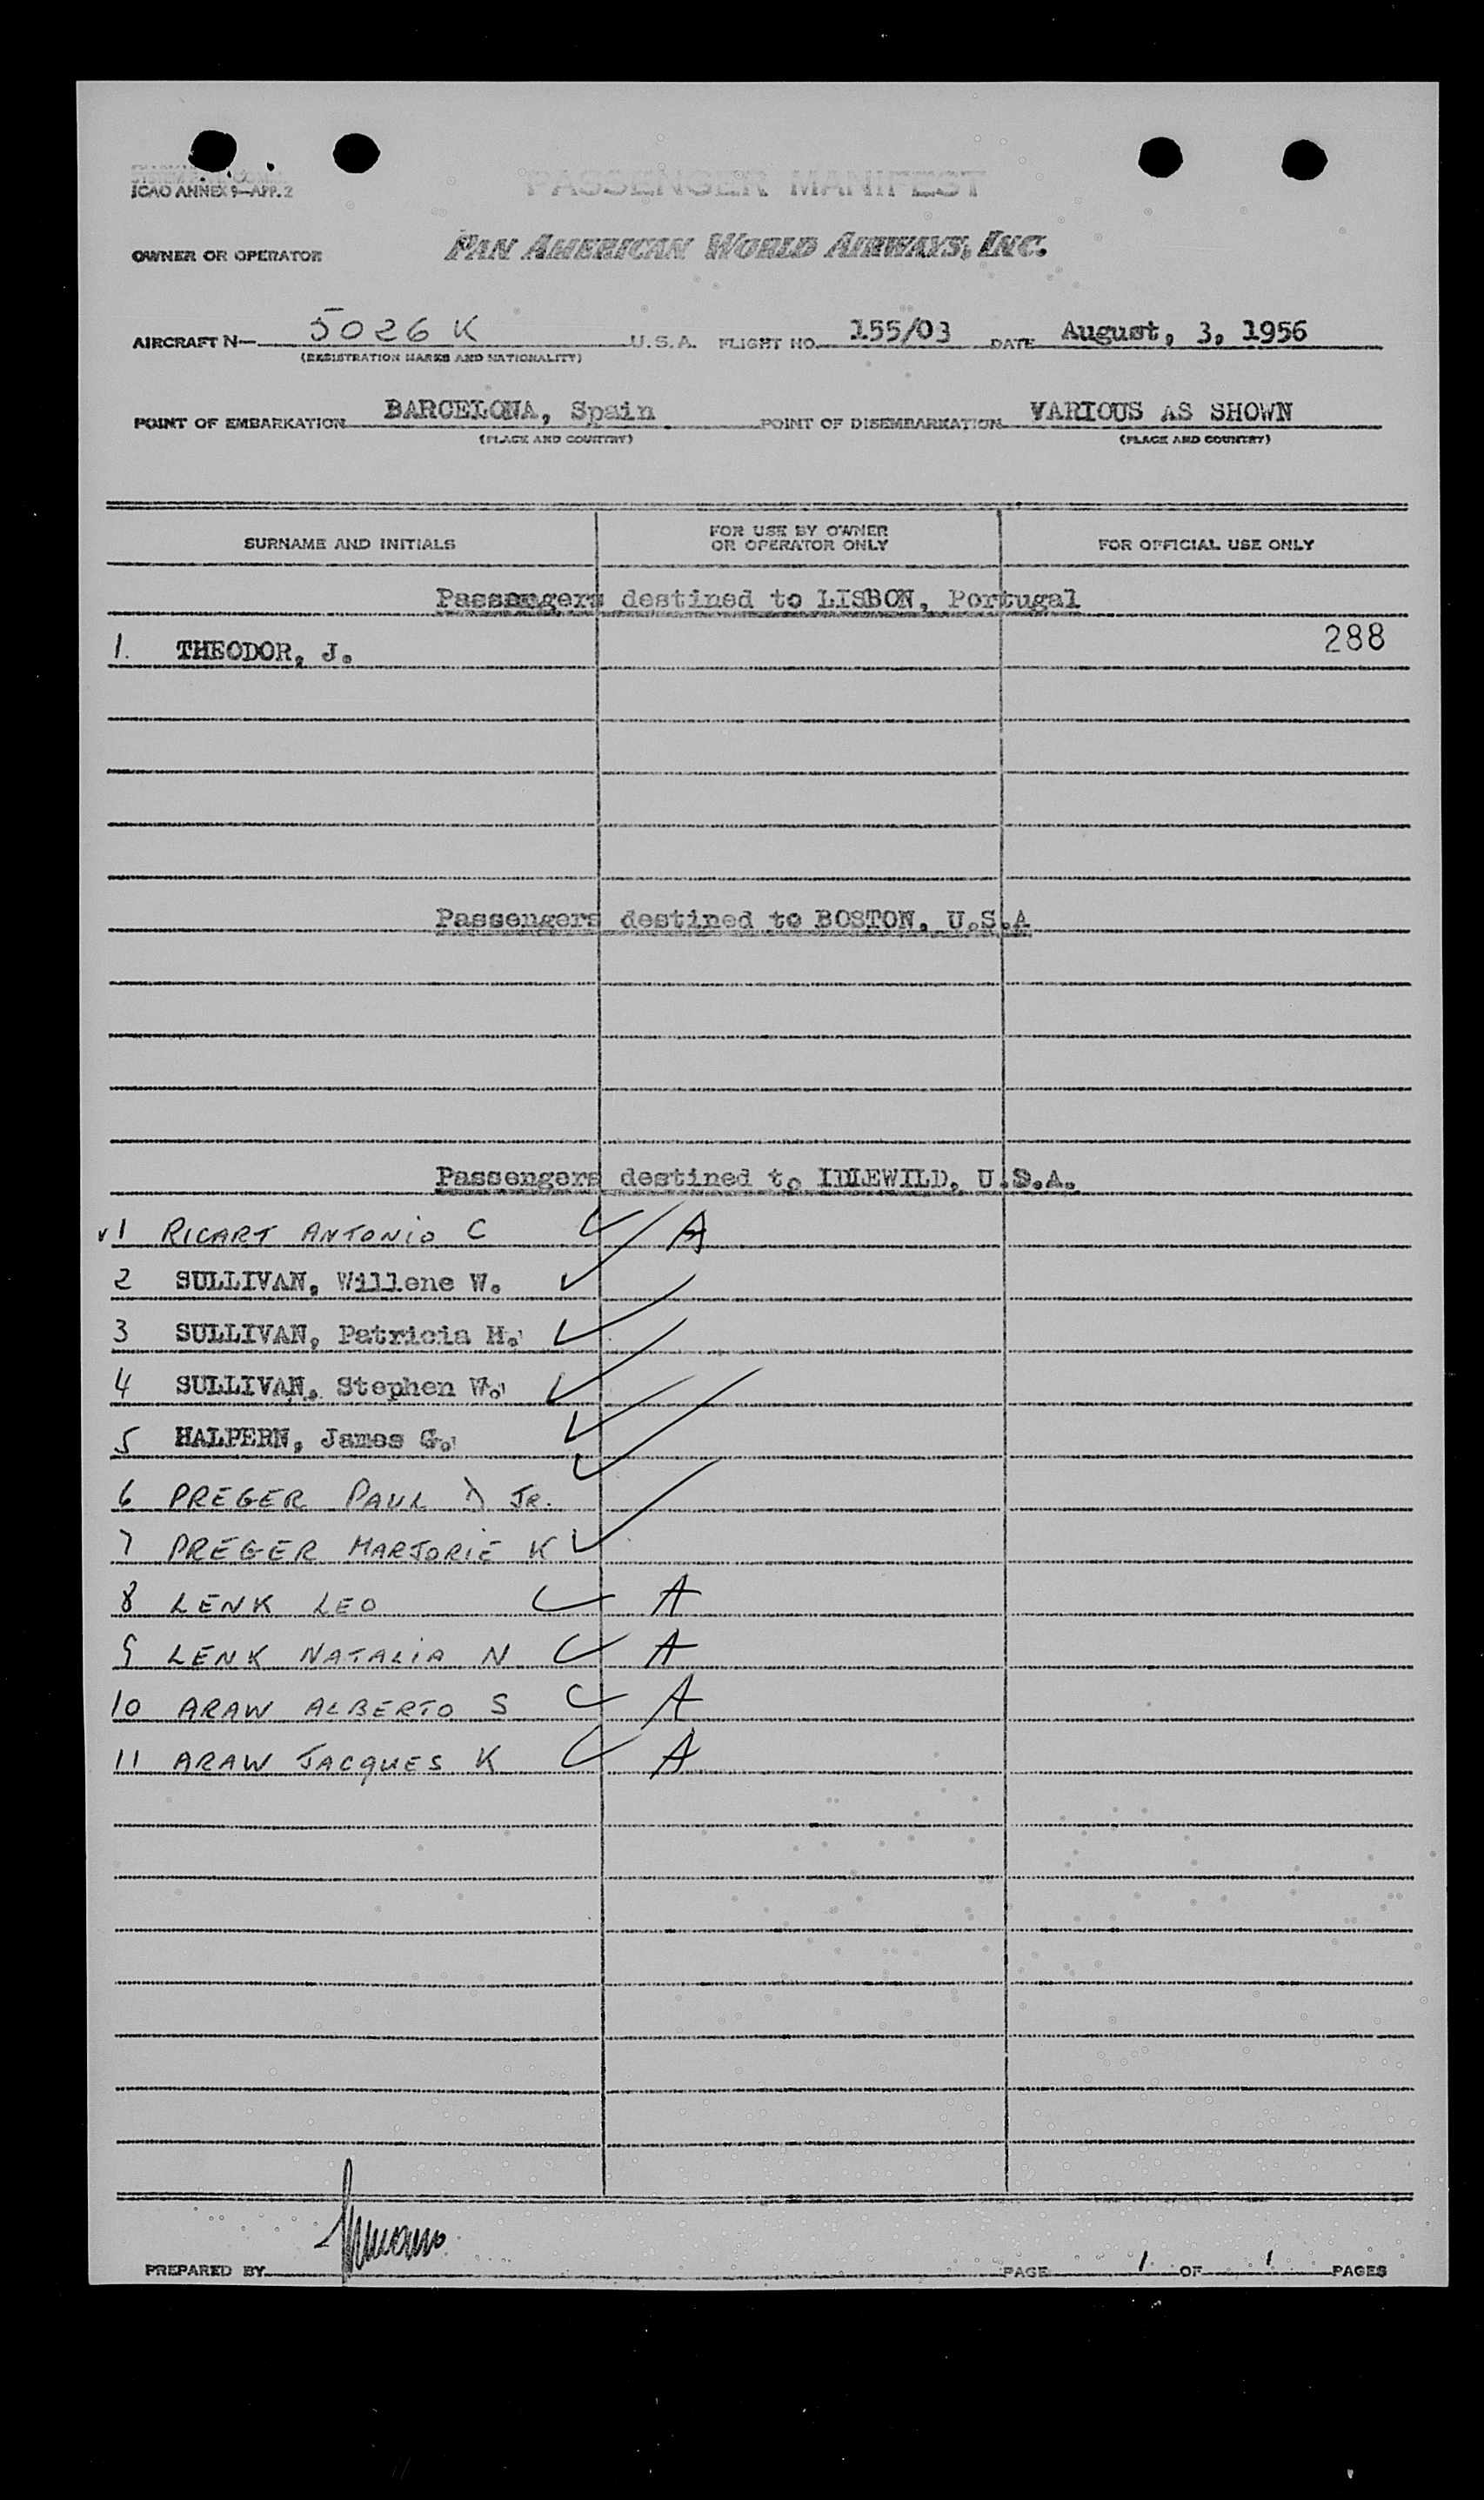 ICAO ANNEX 9—APP. 2
PASSENGER MANIFEST
OWNER OR OPERATOR PAN AMERICAN WORLD AIRWAYS, INC.
AIRCRAFT N— 5026 K U.S.A. FLIGHT NO. 155/03 DATE August, 3, 1956
(REGISTRATION MARKS AND NATIONALITY)
POINT OF EMBARKATION BARCELONA, Spain POINT OF DISEMBARKATION VARIOUS AS SHOWN
(PLACE AND COUNTRY) (PLACE AND COUNTRY)
SURNAME AND INITIALS FOR USE BY OWNER OR OPERATOR ONLY FOR OFFICIAL USE ONLY
Passengers destined to LISBON, Portugal
1. THEODOR, J. 288
Passengers destined to BOSTON, U.S.A
Passengers destined to IDLEWILD, U.S.A.
1 RICART ANTONIO C A
2 SULLIVAN, Willene W.
3 SULLIVAN, Patricia H.
4 SULLIVAN, Stephen W.
5 HALPERN, James G.
6 PREGER PAUL D JR.
7 PREGER MARJORIE K
8 LENK LEO A
9 LENK NATALIA N A
10 ARAW ALBERTO S A
11 ARAW JACQUES K A
PREPARED BY PAGE 1 OF 1 PAGES